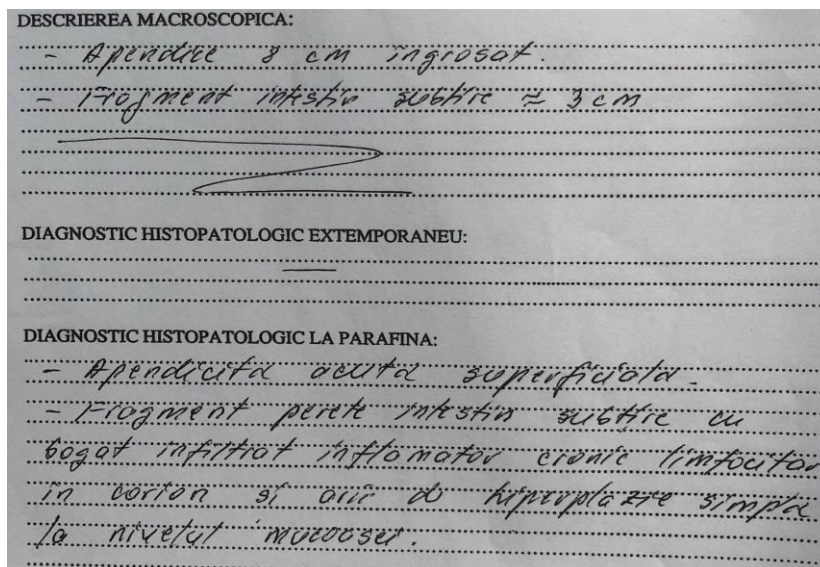 DESCRIEREA MACROSCOPICA:
- Apendice 8 cm ingrosat.
- Fragment intestin subtire ≈ 3 cm
DIAGNOSTIC HISTOPATOLOGIC EXTEMPORANEU:
DIAGNOSTIC HISTOPATOLOGIC LA PARAFINA:
- Apendicita acuta superficiala.
- Fragment perete intestin subtire cu
bogat infiltrat inflamator cronic limfocitar
in corion si arii de hiperplazie simpla
la nivelul mucoasei.